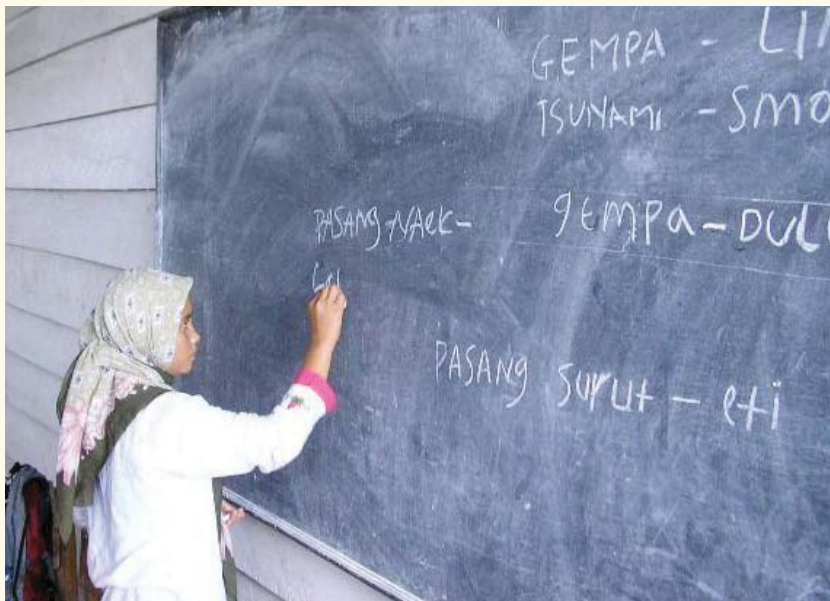 GEMPA -
TSUNAMI -
PASANG NAEK -
gEMPa - DUL
PASANg SuruT - eti